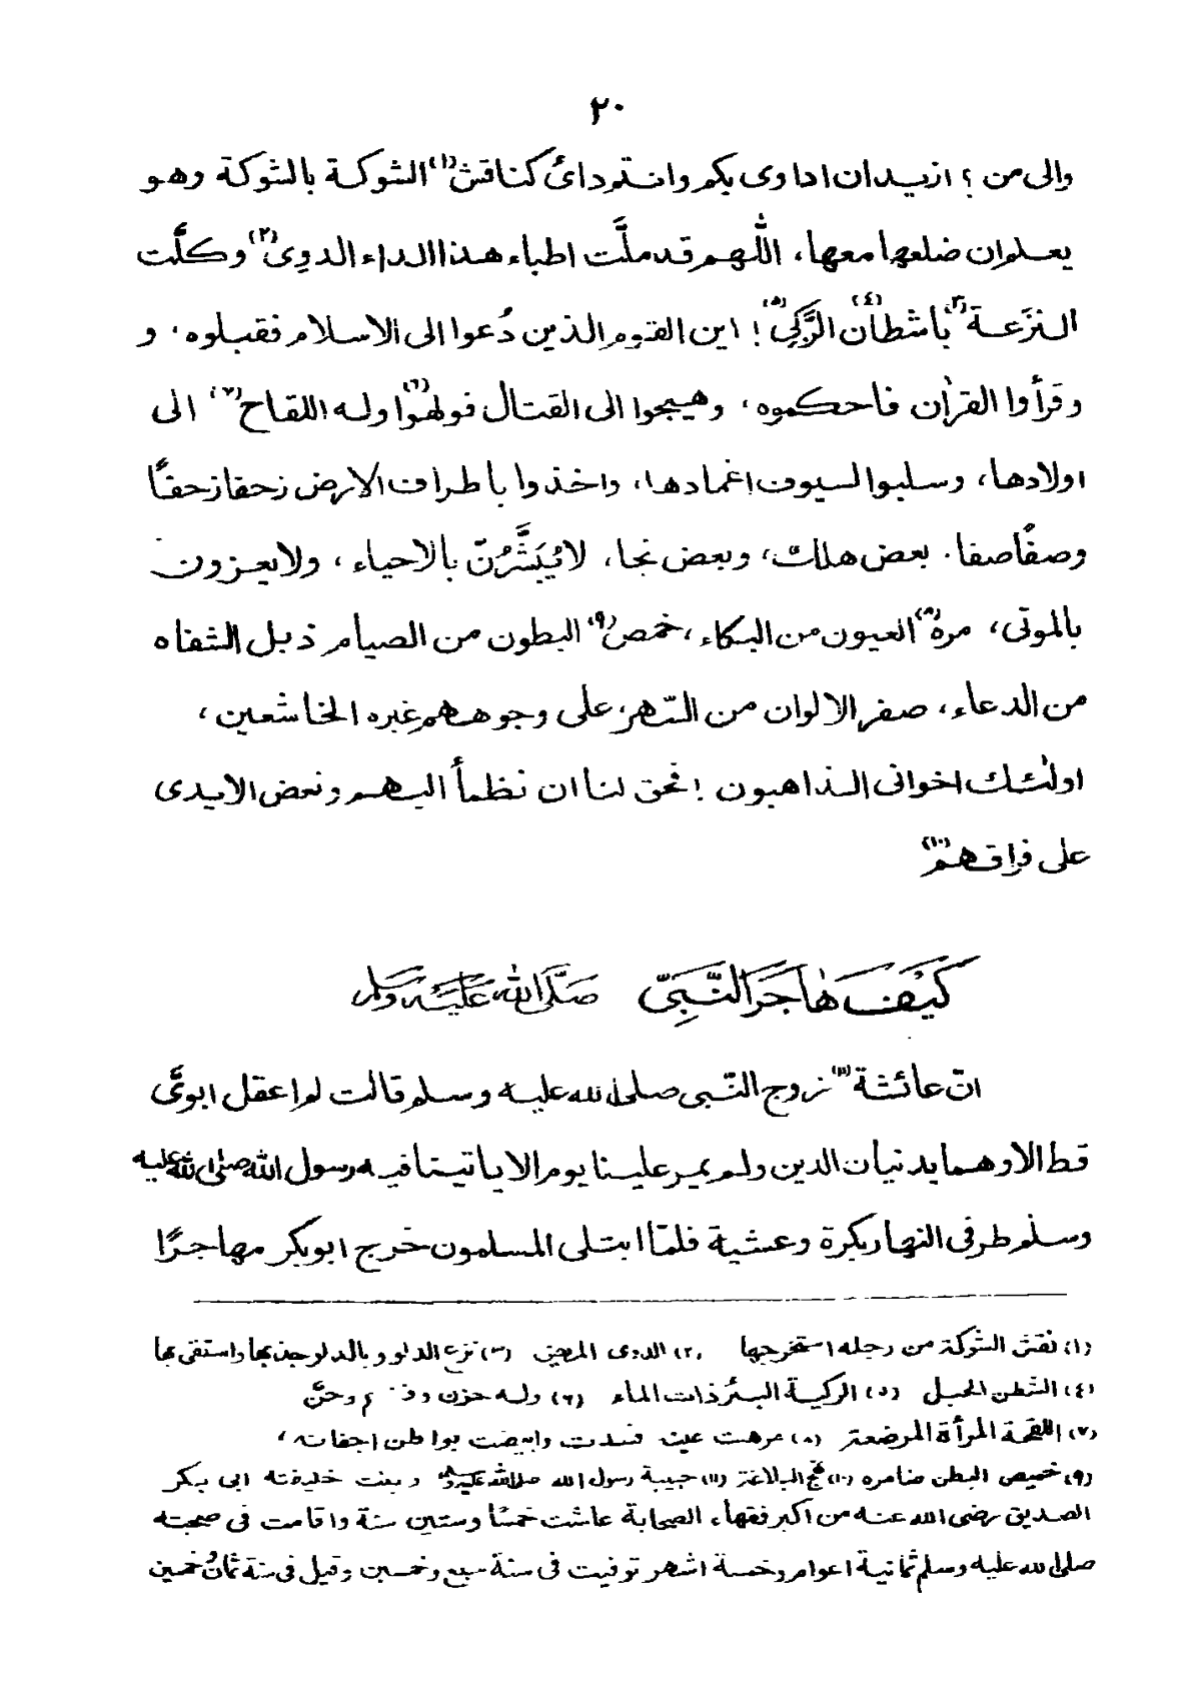 ٢٠
والى من ؟ اريد ان اداوى بكم وانتم دائى كناقش(١) الشوكة بالشوكة وهو
يعلم ان ضلعها معها، اللّٰهم قد ملَّت اطباء هذا الداء الدوِى(٢) وكلَّت
النزَعة(٣) باشطان(٤) الرَّكِى(٥)! اين القوم الذين دُعوا الى الاسلام فقبلوه، و
وقرأوا القرأن فاحكموه، وهيجوا الى القتال فولهوا(٦) وله اللقاح(٧) الى
اولادها، وسلبوا لسيوف اغمادها، واخذوا باطراف الارض زحفا زحفًا
وصفًا صفا. بعض هلك، وبعض نجا، لا يُبَشَّرُنّ بالاحياء، ولا يعزون
بالموتى، مره(٨) العيون من البكاء، خمص(٩) البطون من الصيام ذبل الشفاه
من الدعاء، صفر الالوان من السّهر، على وجوههم غبره الخاشعين،
اولٰئك اخوانى الذاهبون! فحق لنا ان نظمأ اليهم ونعض الايدى
على فراقهم(١٠)
كَيْفَ هَاجَرَ النَّبِىّ صَلَّى اللّٰه عَلَيْهِ وَسَلَّم
انّ عائشة(١١) زوج النّبى صلى الله عليه وسلم قالت لم اعقل ابوىَّ
قط الا وهما يدنيان الدين ولم يمر علينا يوم الا ياتينا فيه رسول الله صلى الله عليه
وسلم طرفى النهار بكرة وعشية فلمّا ابتلى المسلمون خرج ابوبكر مهاجرًا
(١) نقش الشوكة من رجله استخرجها (٢) الدوى المريض (٣) نزع الدلو وبالدلو جذبها واستقى بها
(٤) الشطن الحبل (٥) الركية البئر ذات الماء (٦) وله حزن و وحنّ
(٧) اللقحة المرأة المرضعة (٨) مرهت عينه فسدت وابيضت بواطن اجفانه،
(٩) خميص البطن ضامره (١٠) نهج البلاغة (١١) حبيبة رسول الله صلى الله عليه وسلم وبنت خليفته ابى بكر
الصديق رضى الله عنه من اكبر فقهاء الصحابة عاشت خمسًا وستين سنة واقامت فى صحبته
صلى الله عليه وسلم ثمانية اعوام وخمسة اشهر توفيت فى سنة سبع وخمسين وقيل فى سنة ثمان وخمسين